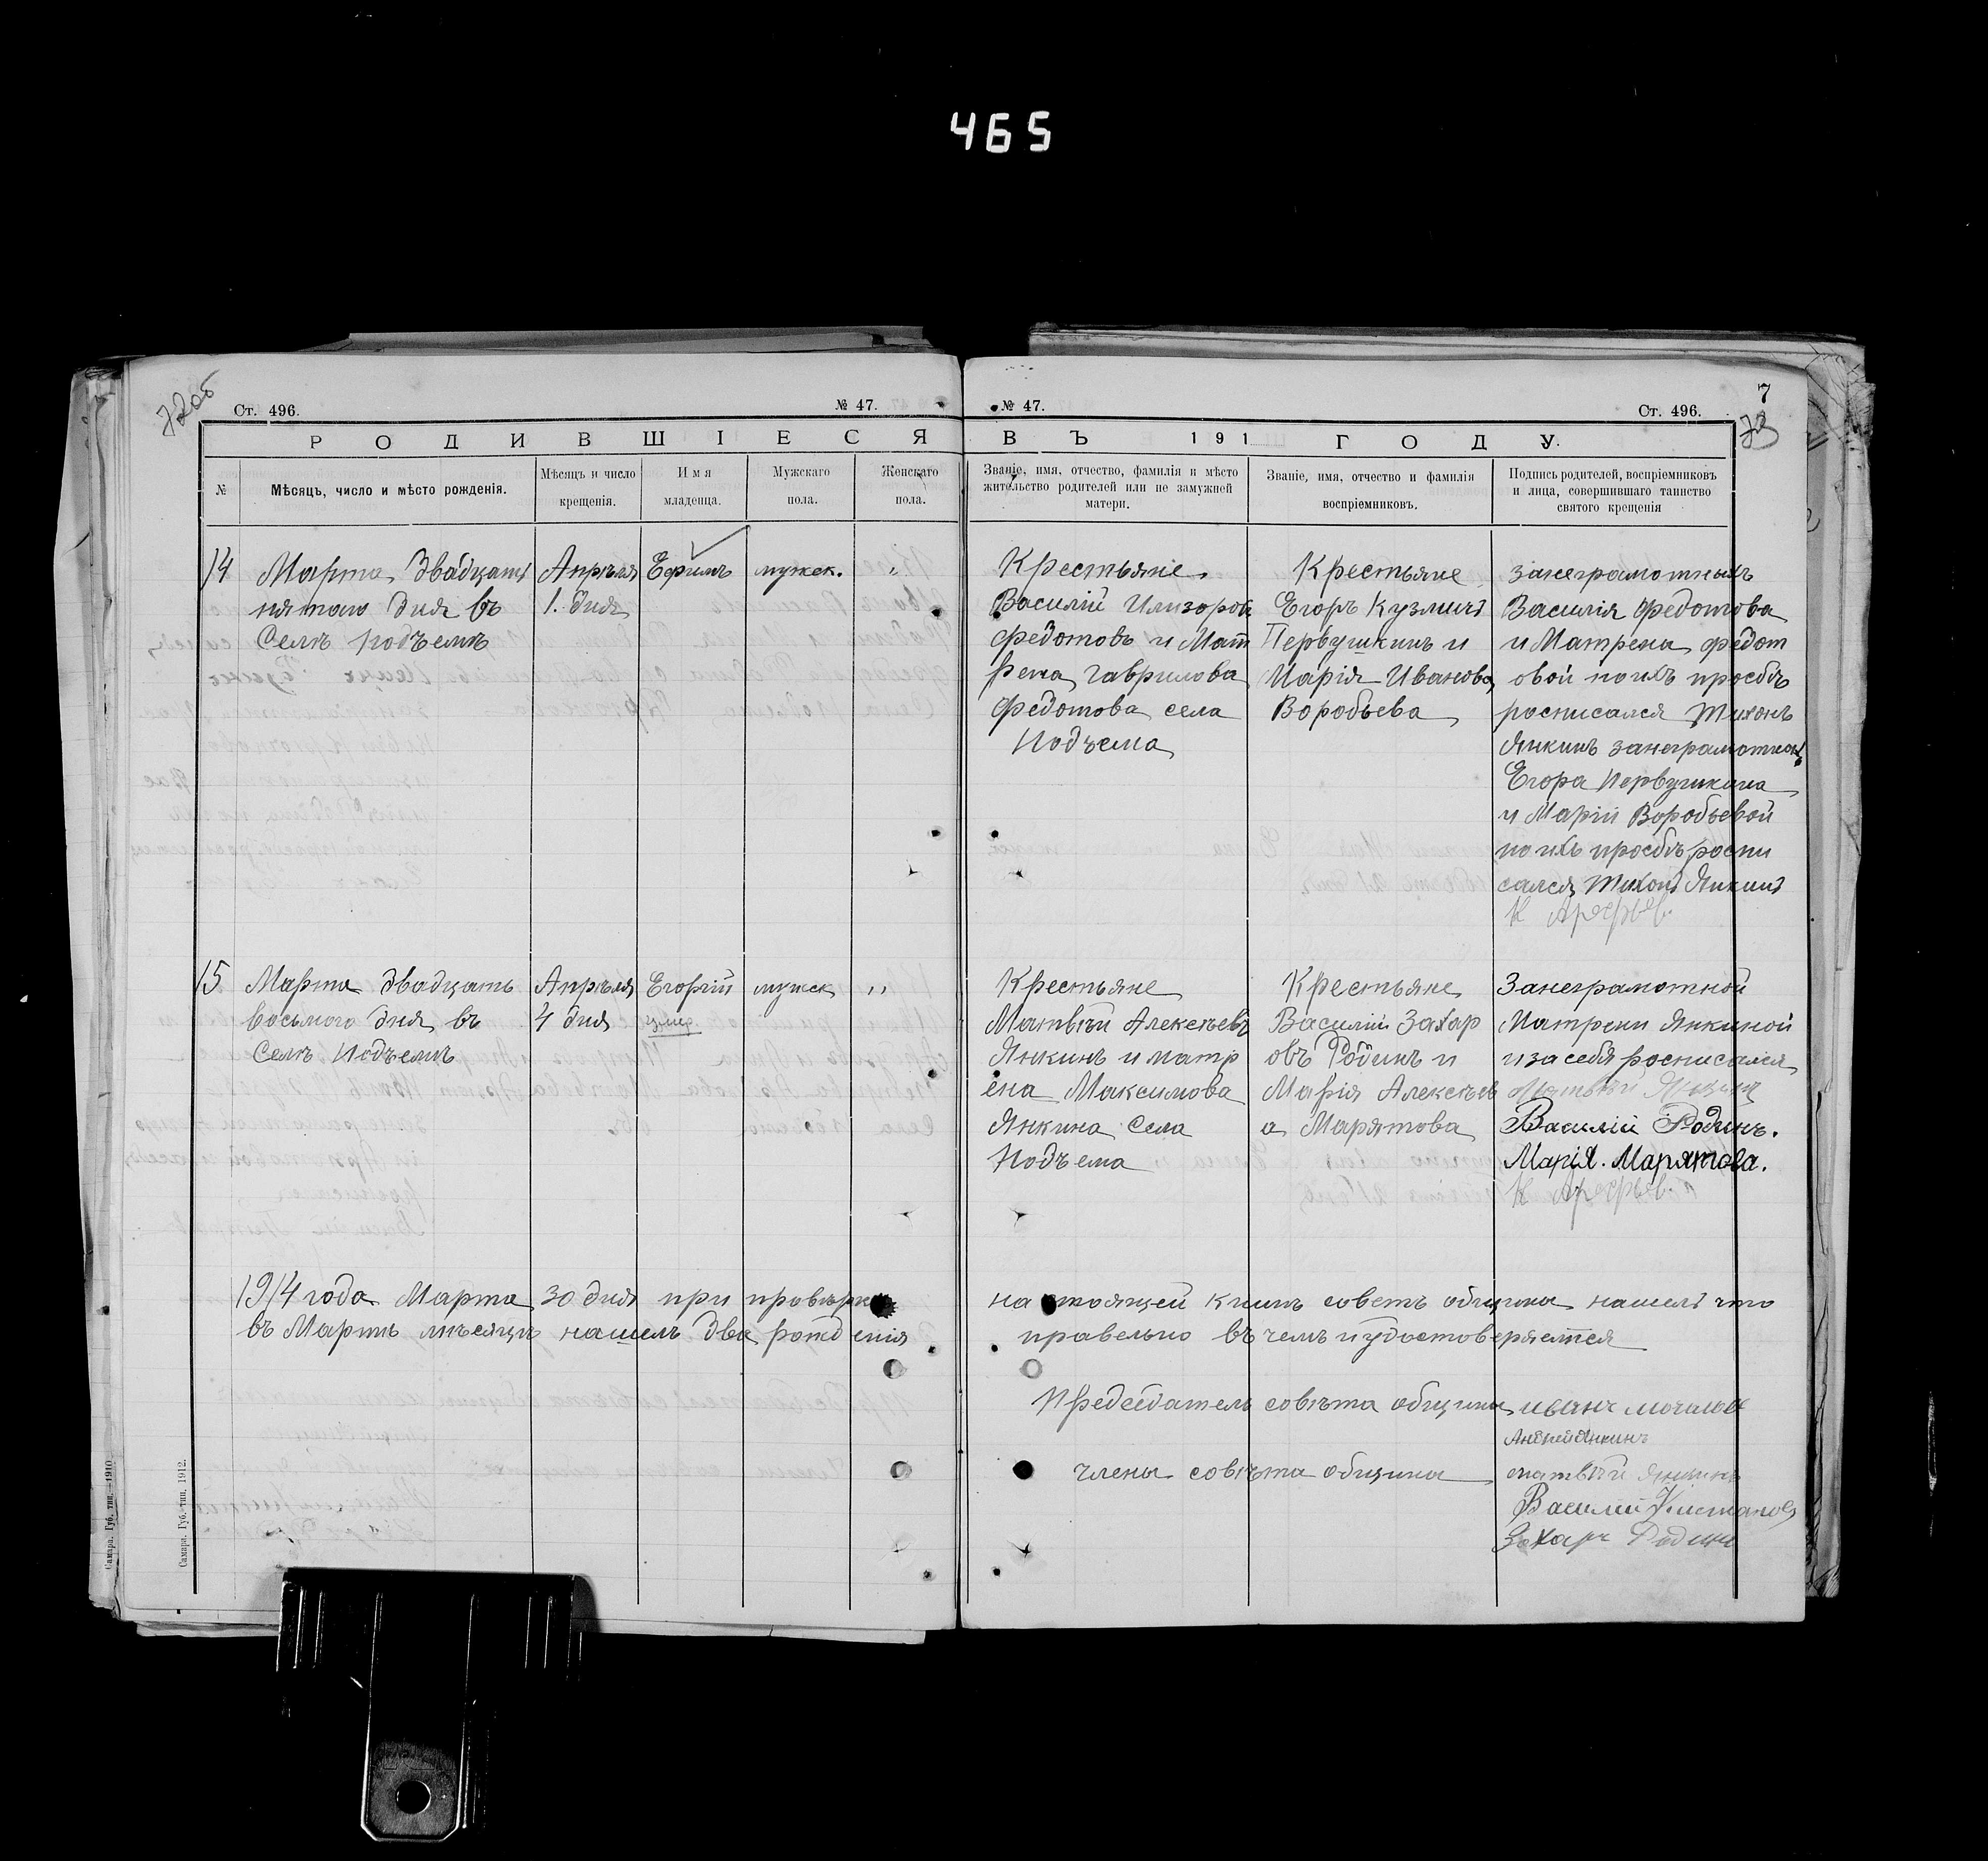 465
72об
Ст. 496.
№ 47.
№ 47.
7
Ст. 496.
73
РОДИВШІЕСЯ
ВЪ 191 ГОДУ.
№
Мѣсяцъ, число и мѣсто рожденія.
Мѣсяцъ и число
крещенія.
Имя
младенца.
Мужскаго
пола.
Женскаго
пола.
Званіе, имя, отчество, фамилія и мѣсто
жительство родителей или не замужней
матери.
Званіе, имя, отчество и фамилія
воспріемниковъ.
Подпись родителей, воспріемниковъ
и лица, совершившаго таинство
святого крещенія
14
Марта двадцать
пятаго дня въ
Селѣ Подъемѣ
Апрѣля
1. дня
Ефимъ
мужск.
"
Крестьяне
Василій
Федотовъ и Мат
рена Гаврилова
Федотова села
Подъема
Крестьяне
Егоръ Кузмичъ
Первушкинъ и
Марія Иванова
Воробьева
занеграмотныхъ
Василія Федотова
и Матрена Федот
овой по ихъ просбѣ
росписался Тихонъ
Янкинъ занеграмотных
Егора Первушкина
и Маріи Воробьевой
по ихъ просбѣ роспи
сался Тихонъ Янкинъ
15
Марта двадцать
восьмого дня въ
Селѣ Подъемѣ
Апрѣля
4 дня
Егорій
умер
мужск
"
Крестьяне
Матвѣй Алексѣевъ
Янкинъ и матр
ена Максимова
Янкина Села
Подъема
Крестьяне
Василій Захар
овъ Родинъ и
Марія Алексѣев
а Марятова
Занеграмотной
Матрени Янкиной
и за себя росписался
Матвѣй Янкинъ
Василій Родинъ.
Марія. Марятова.
1914 года Марта 30 дня при провѣрке настоящей книгѣ советъ общины нашелъ что
въ Мартѣ мѣсяцѣ нашелъ два рождения правельно въ чемъ и удостоверяется
Председатель совѣта общины иванъ мочалов
Андрей Янкинъ
члены совѣта общины матвѣй Янкинъ
Василій
Захаръ Родинъ
Самара. Губ. тип.—1910
Самара. Губ. тип. 1912.